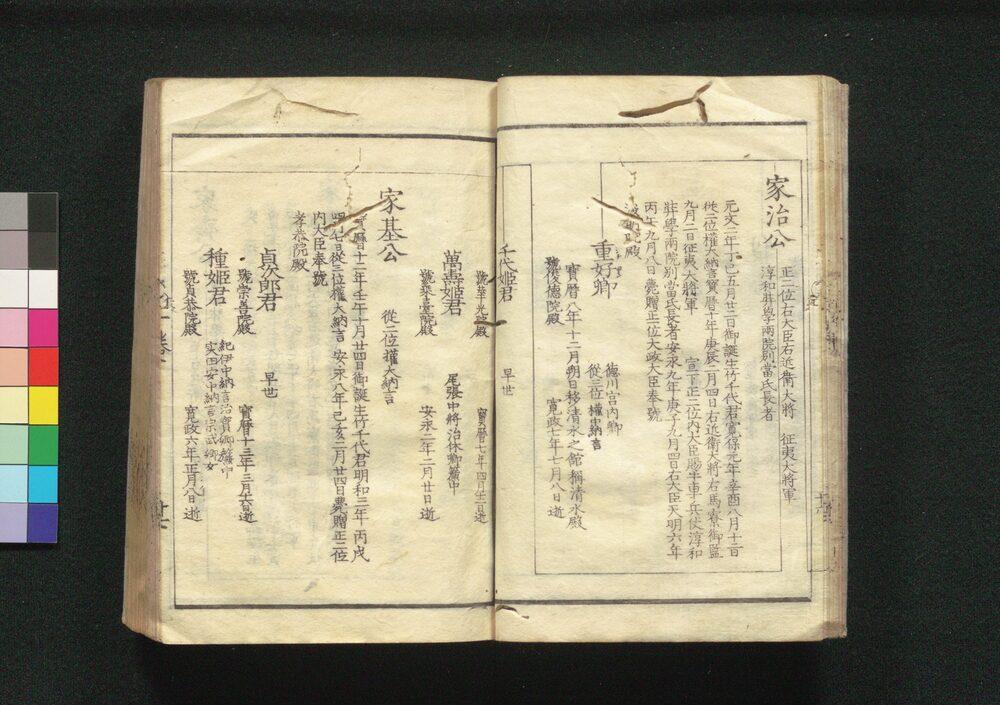 家治公
正二位右大臣右近衛大將 征夷大將軍
淳和奬學兩院別當氏長者
元文二年丁巳五月廿二日御誕生竹千代君寛保元年辛酉八月十二日
從二位權大納言寶暦十年庚辰二月四日右近衛大將右馬寮御監
九月二日征夷大將軍 宣下正二位内大臣賜牛車兵仗淳和
奘學兩院別當氏長者安永九年庚子九月四日右大臣天明六年
丙午九月八日薨贈正一位太政大臣奉號
明院殿
重好卿
徳川宮内卿
從三位權中納言
寶暦八年十二月朔日移清水之館稱清水殿
號俊徳院殿 寛政七年七月八日逝
千代姫君 早世
號華光院殿 寶暦七年四月十二日逝
萬壽姫君 尾張中將治休卿簾中
號乗臺院殿 安永二年二月廿日逝
家基公 從二位權大納言
寶暦十二年壬午十月廿四日御誕生竹千代君明和三年丙戌
四月七日從三位權大納言安永八年己亥二月廿四日薨贈正二位
内大臣奉號
孝恭院殿
貞次郎君 早世
號崇善院殿 寶暦十三年三月十六日逝
種姫君
紀伊中納言治寶卿簾中
實田安中納言宗武卿女
號貞恭院殿 寛政六年正月八日逝